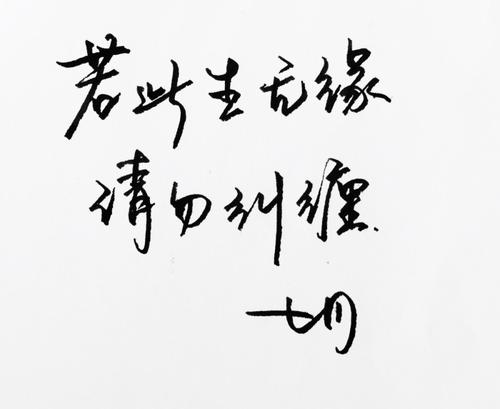 若此生无缘
请勿纠缠.